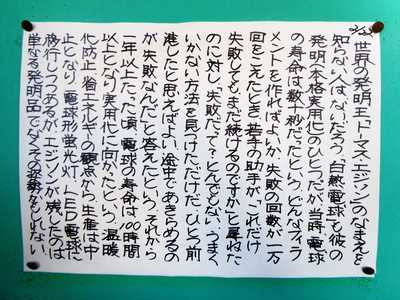 世界の発明王「トーマス・エジソン」のなまえを
知らない人はないだろう。「白熱電球」も彼の
発明（本格実用化）のひとつだが、当時、電球
の寿命は数十秒だったという。どんなフィラ
メントを作ればよいか、失敗の回数が一万
回をこえたとき、若手の助手が、「これだけ
失敗してもまだ続けるのですか」と尋ねた
のに対し、「失敗だって？とんでもない。うまく
いかない方法を見つけただけだ。ひとつ前
進したと思えばよい。途中であきらめるの
が失敗なんだ」と答えたという。それから
一年以上たった頃、電球の寿命は100時間
以上となり実用化に向かったという。温暖
化防止、省エネルギーの観点から、生産は中
止となり、電球形蛍光灯、LED電球に
移行しつつあるが、エジソンが残したのは
単なる発明品でなくその姿勢かもしれない。